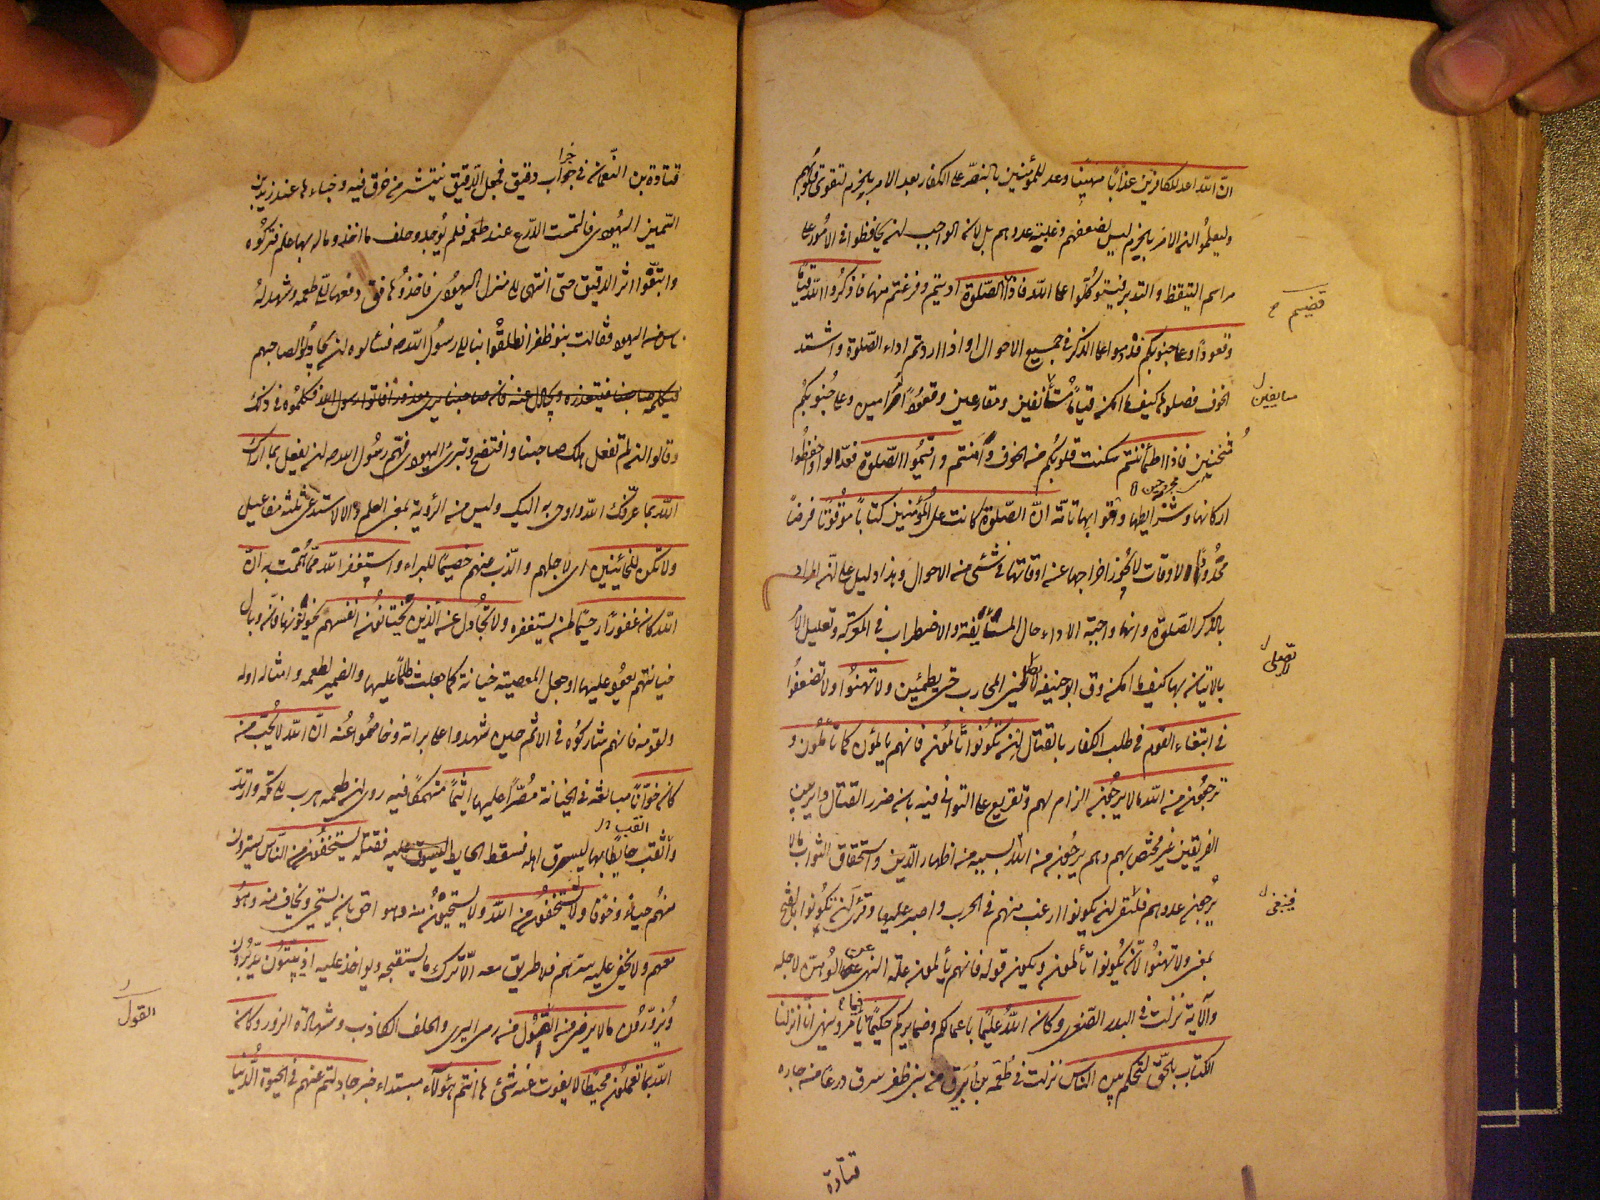 انّ الله اعد للكافرين عذابًا مهينًا وعد للمؤمنين بالنصر على الكفار بعد الامر بالحزم لتقوى قلوبهم
وليعلموا ان الامر بالحزم ليس لضعفهم وغلبة عدوهم بل لان الواجب ان يحافظوا فى الامور على
مراسم التيقظ والتدبر فيتوكلوا على الله فاذا قضيتم الصلوة اديتم وفرغتم منها فاذكروا الله قيامًا
وقعودًا وعلى جنوبكم فدوموا على الذكر فى جميع الاحوال او اذا اردتم اداء الصلوة واشتد
الخوف فصلوها كيف ما امكن قيامًا مسايفين ومقارعين وقعودًا مرامين وعلى جنوبكم
مثخنين فاذا اطمأننتم سكنت قلوبكم من الخوف وأمنتم واقيموا الصلوة فعدلوا واحفظوا
اركانها وشرايطها وأتوا بها تامة انّ الصلوة كانت على المؤمنين كتابًا موقوتًا فرضًا
محدود الاوقات لا يجوز اخراجها عن اوقاتها فى شئ من الاحوال وهذا دليل على ان المراد
بالذكر الصلوة وانها واجبة الاداء حال المسايفة والاضطراب فى المعركة وتعليل للامر
بالاتيان بها كيف ما امكن وق ابو حنيفة لا يصلى المحارب حتى يطمئن ولا تهنوا ولا تضعفوا
فى ابتغاء القوم فى طلب الكفار بالقتال ان تكونوا تألمون فانهم يألمون كما تألمون و
ترجون من الله ما لا يرجون الزام لهم وتقريع على التوانى فيه بان ضرر القتال داير بين
الفريقين غير مختص بهم وهم يرجون من الله بسببه من اظهار الدين واستحقاق الثواب ما لا
يرجون عدوهم فينبغى ان يكونوا ارغب منهم فى الحرب واصبر عليها وقرئ ان تكونوا بالفتح
بمعنى ولا تهنوا لأن تكونوا تألمون ويكون قوله فانهم يألمون علة النهى عن الوهن لاجله
والآية نزلت فى البدر الصغرى وكان الله عليمًا باعمالكم وضمايركم حكيمًا فيما يأمر وينهى انّا انزلنا
الكتاب بالحق لتحكم بين الناس نزلت فى طعمة بن أبيرق من بنى ظفر سرق درعا من جاره
قضيتم
مسايفين
لا يصلى
فينبغى
قتادة
قتادة بن النعمان فى جراب دقيق فجعل الدقيق ينتشر من خرق فيه وخباءها عند زيد بن
السمين اليهودى فالتمست الدرع عند طعمة فلم توجد وحلف ما اخذ وما له بها علم فتركوه
واتبعوا اثر الدقيق حتى انتهى الى منزل اليهودى فاخذوها فق دفعها الى طعمة وشهد له
ناس من اليهود فقالت بنو ظفر انطلقوا بنا الى رسول الله ص فسألوه ان يجادل لصاحبهم
وقالوا ان لم تفعل هلك صاحبنا وافتضح وتبرئ اليهودى فهم رسول الله ص ان يفعل بما اراك
الله بما عرفك الله واوحى به اليك وليس من الرؤية بمعنى العلم والا لاستدعى ثلثة مفاعيل
ولا تكن للخائنين اى لاجلهم والذب عنهم خصيمًا للبراء واستغفر الله مما هممت به انّ
الله كان غفورًا رحيمًا لمن يستغفره ولا تجادل عن الذين يختانون انفسهم يخونونها فان وبال
خيانتهم يعود عليها او جعل المعصية خيانة كما جعلت ظلمًا عليها والضمير لطعمة وامثاله او له
ولقومه فانهم شاركوه فى الاثم حين شهدوا على براءته وخاصموا عنه انّ الله لا يحب من
كان خوّانًا مبالغة فى الخيانة مصرًا عليها اثيمًا منهمكًا فيه روى ان طعمة هرب الى مكة وارتد
وانقب حايطًا بها ليسرق اهله فسقط الحايط عليه فقتله يستخفون من الناس يستترون
منهم حياءً وخوفا ولا يستخفون من الله ولا يستحيون منه وهو احق بان يستحيى ويخاف منه وهو
معهم ولا يخفى عليه سرهم فلا طريق معه الا ترك ما يستقبحه ويواخذ عليه اذ يبيّتون يدبّرون
ويزوّرون ما لا يرضى من القول من رمى البرى والحلف الكاذب وشهادة الزور وكان
الله بما تعملون محيطًا لا يفوت عنه شئ ها انتم هؤلاء مبتداء خبر جادلتم عنهم فى الحيوة الدنيا
القول